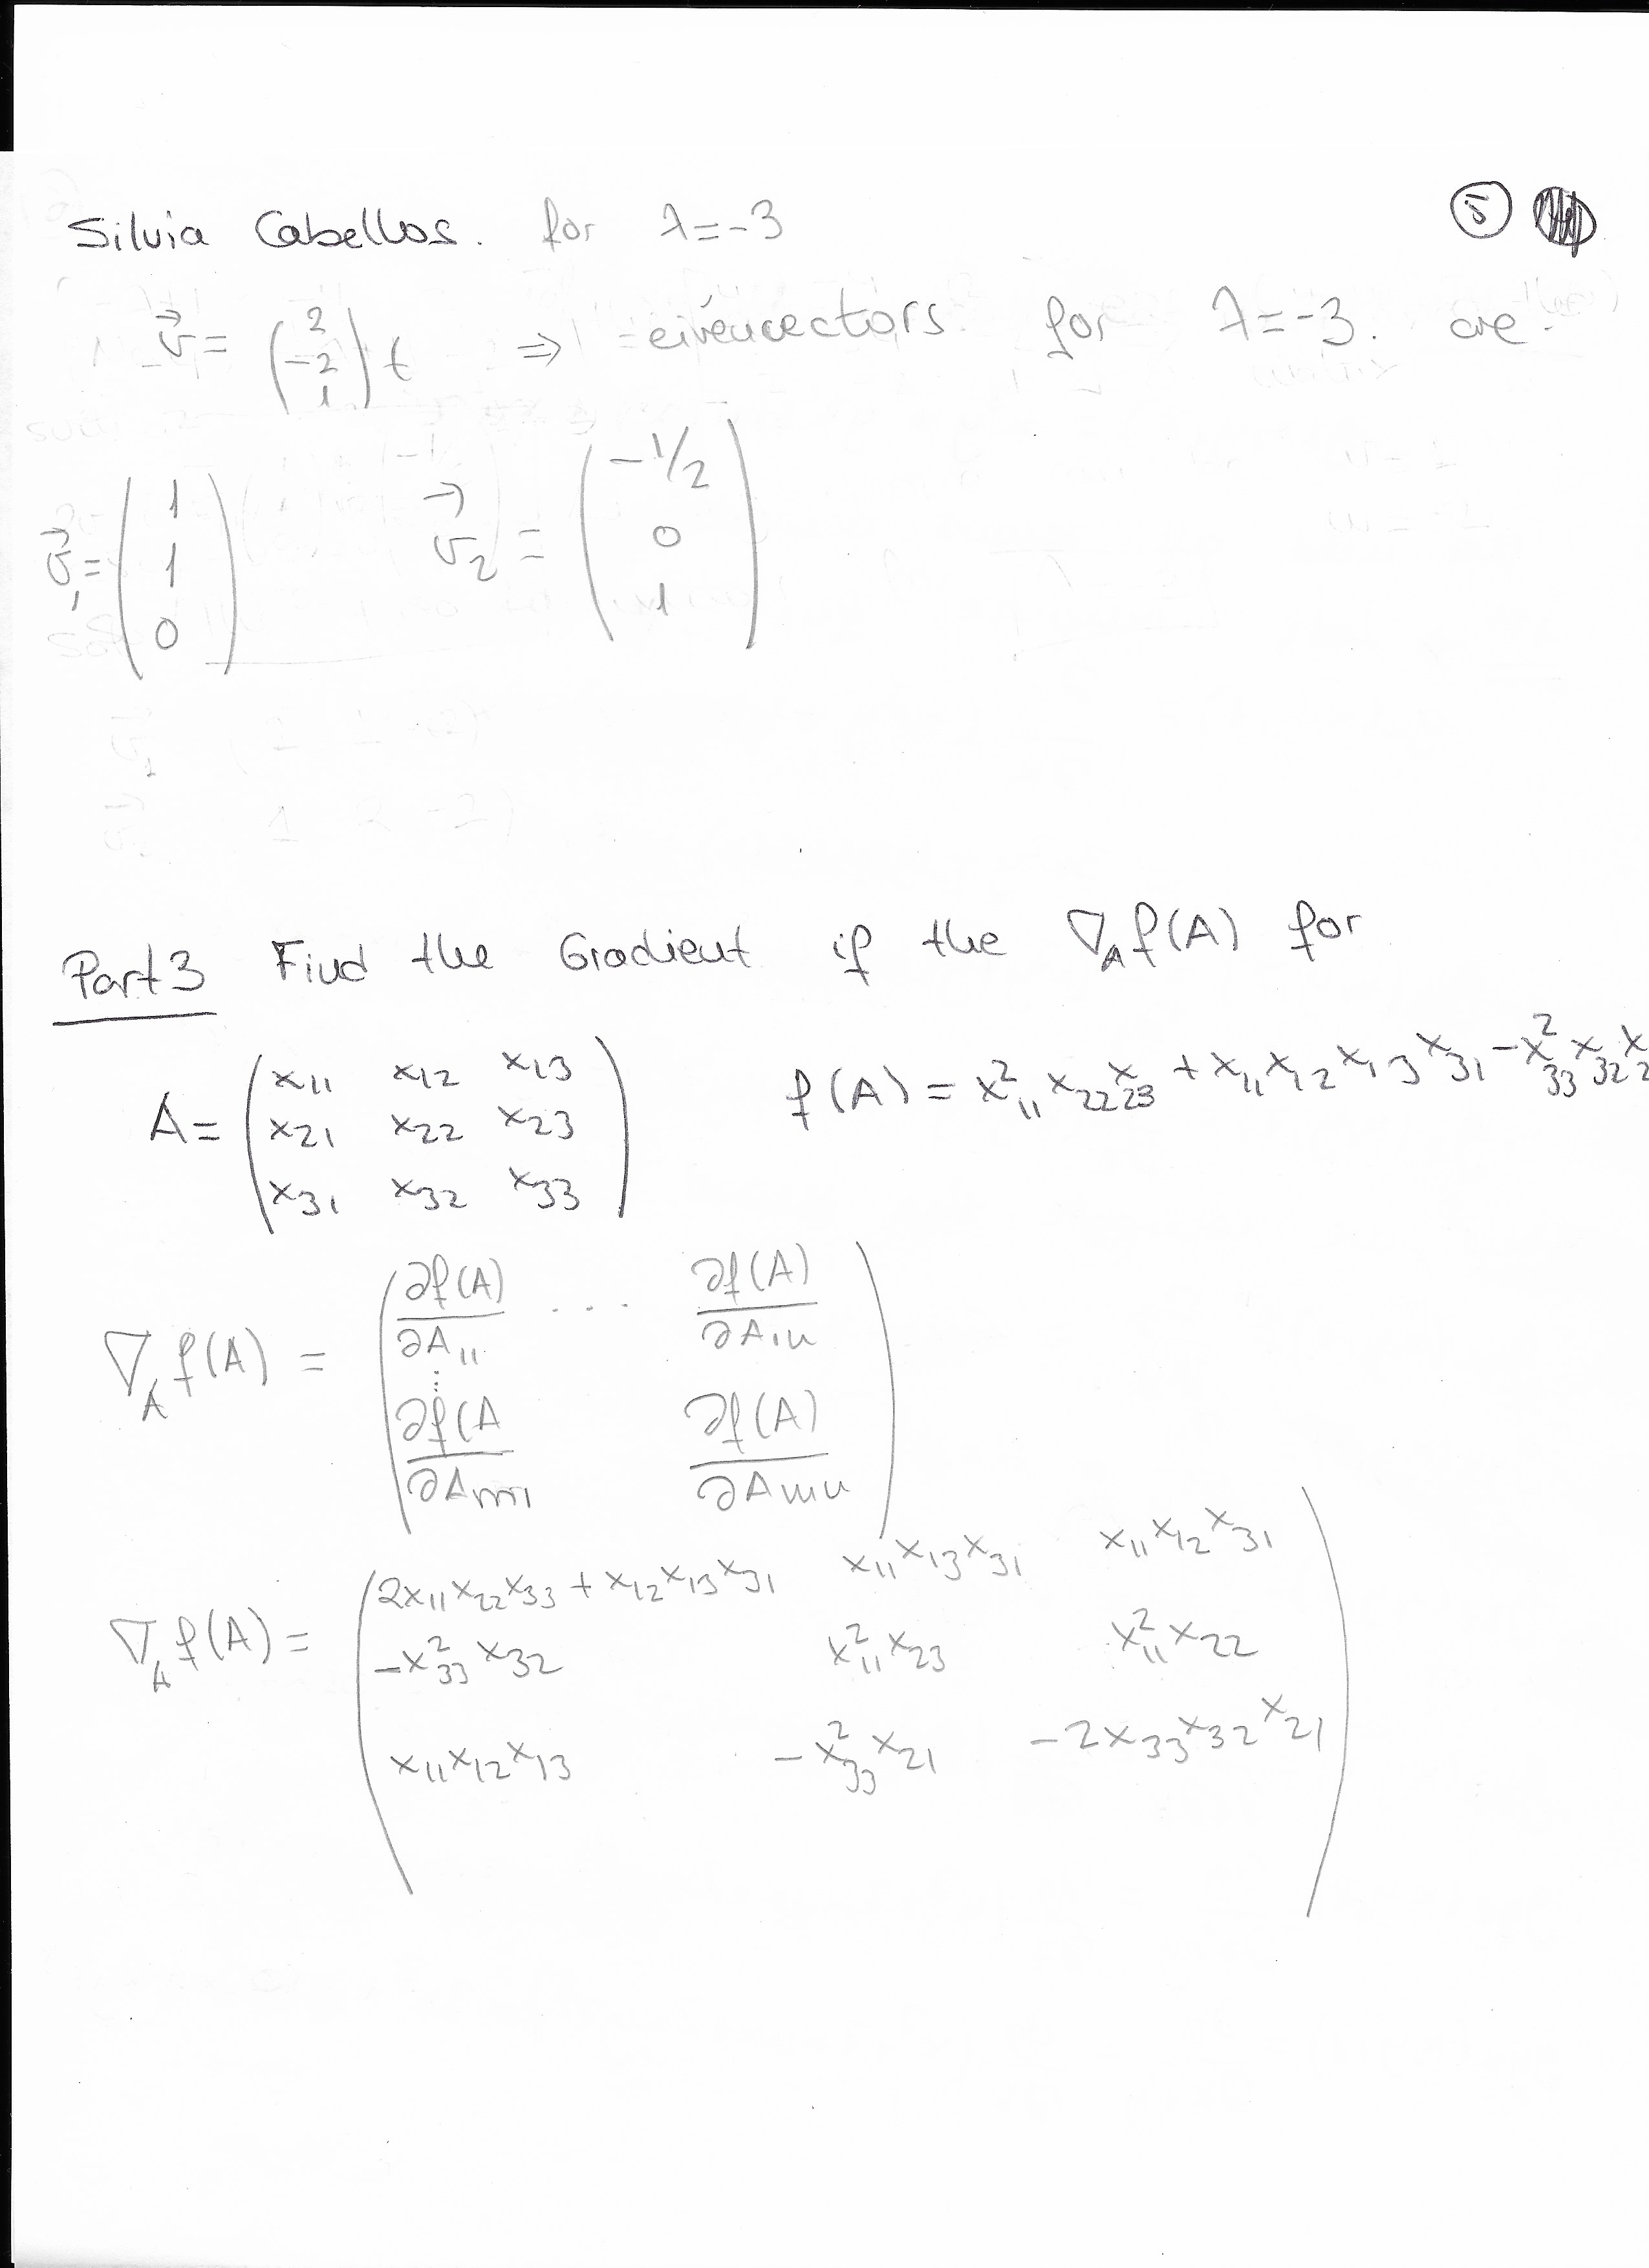 Silvia Cabellos. for λ=-3 ⑤
v⃗ = (2 -2 1) t ⇒ eivenvectors for λ=-3. are.
v⃗₁ = (1 1 0) v⃗₂ = (-1/2 0 1)
Part 3 Find the Gradient if the ∇_A f(A) for
A = (x₁₁ x₁₂ x₁₃
x₂₁ x₂₂ x₂₃
x₃₁ x₃₂ x₃₃)
f(A) = x²₁₁ x₂₂ x₂₃ + x₁₁ x₁₂ x₁₃ x₃₁ - x²₃₃ x₃₂ x₂
∇_A f(A) = (∂f(A)/∂A₁₁ ... ∂f(A)/∂A₁n
⋮
∂f(A/∂Am₁ ∂f(A)/∂Amn)
∇_A f(A) = (2x₁₁x₂₂x₃₃ + x₁₂x₁₃x₃₁ x₁₁x₁₃x₃₁ x₁₁x₁₂x₃₁
-x²₃₃x₃₂ x²₁₁x₂₃ x²₁₁x₂₂
x₁₁x₁₂x₁₃ -x²₃₃x₂₁ -2x₃₃x₃₂x₂₁)